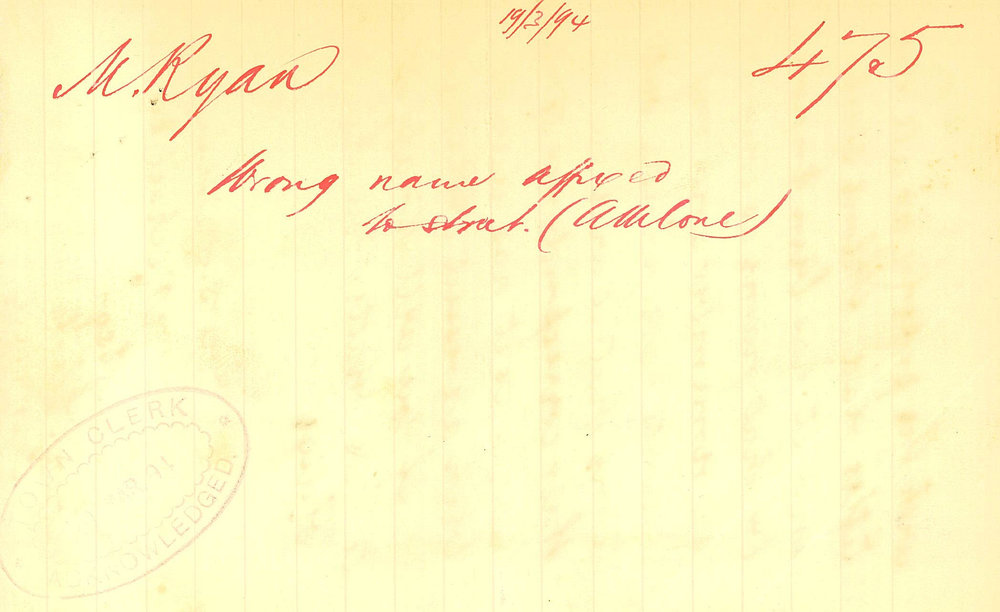 19/3/94
M. Ryan
475
Wrong name affixed
to street. (Athlone)
TOWN CLERK
MAR
ACKNOWLEDGED.